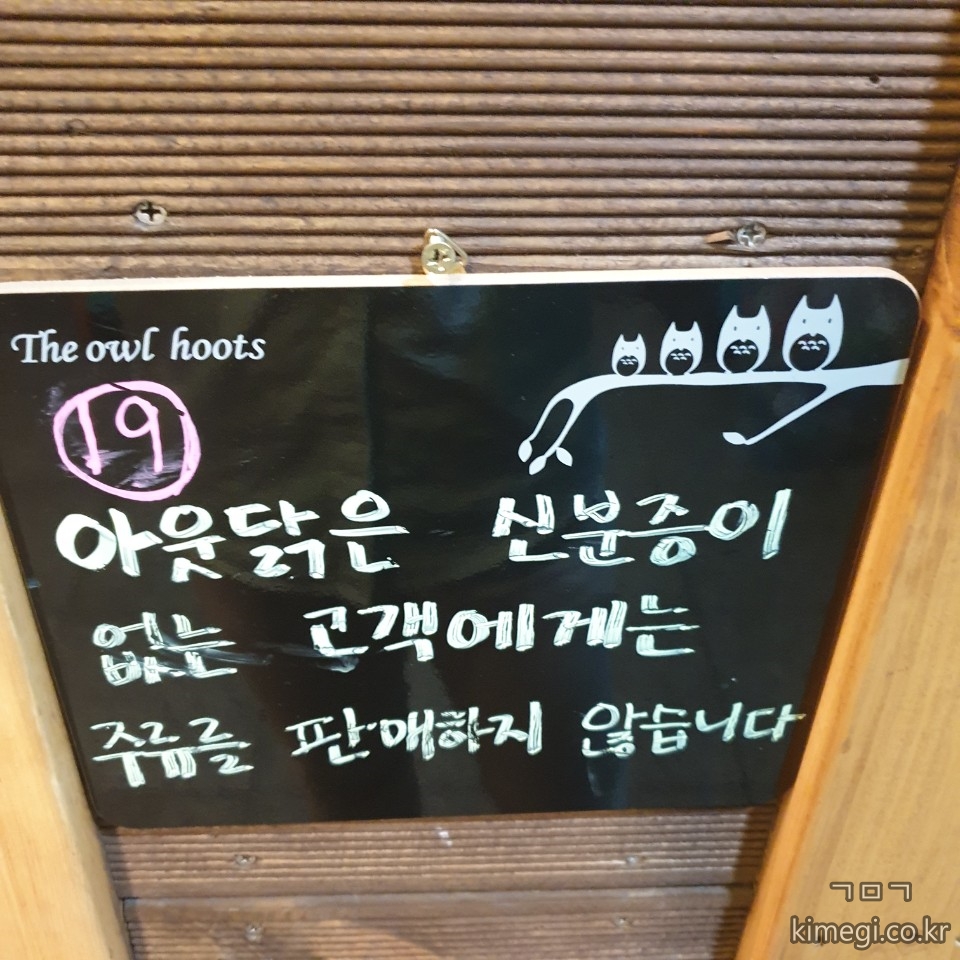 The owl hoots
19
아웃닭은 신분증이
없는 고객에게는
주류를 판매하지 않습니다
ㄱㅁㄱ
kimegi.co.kr